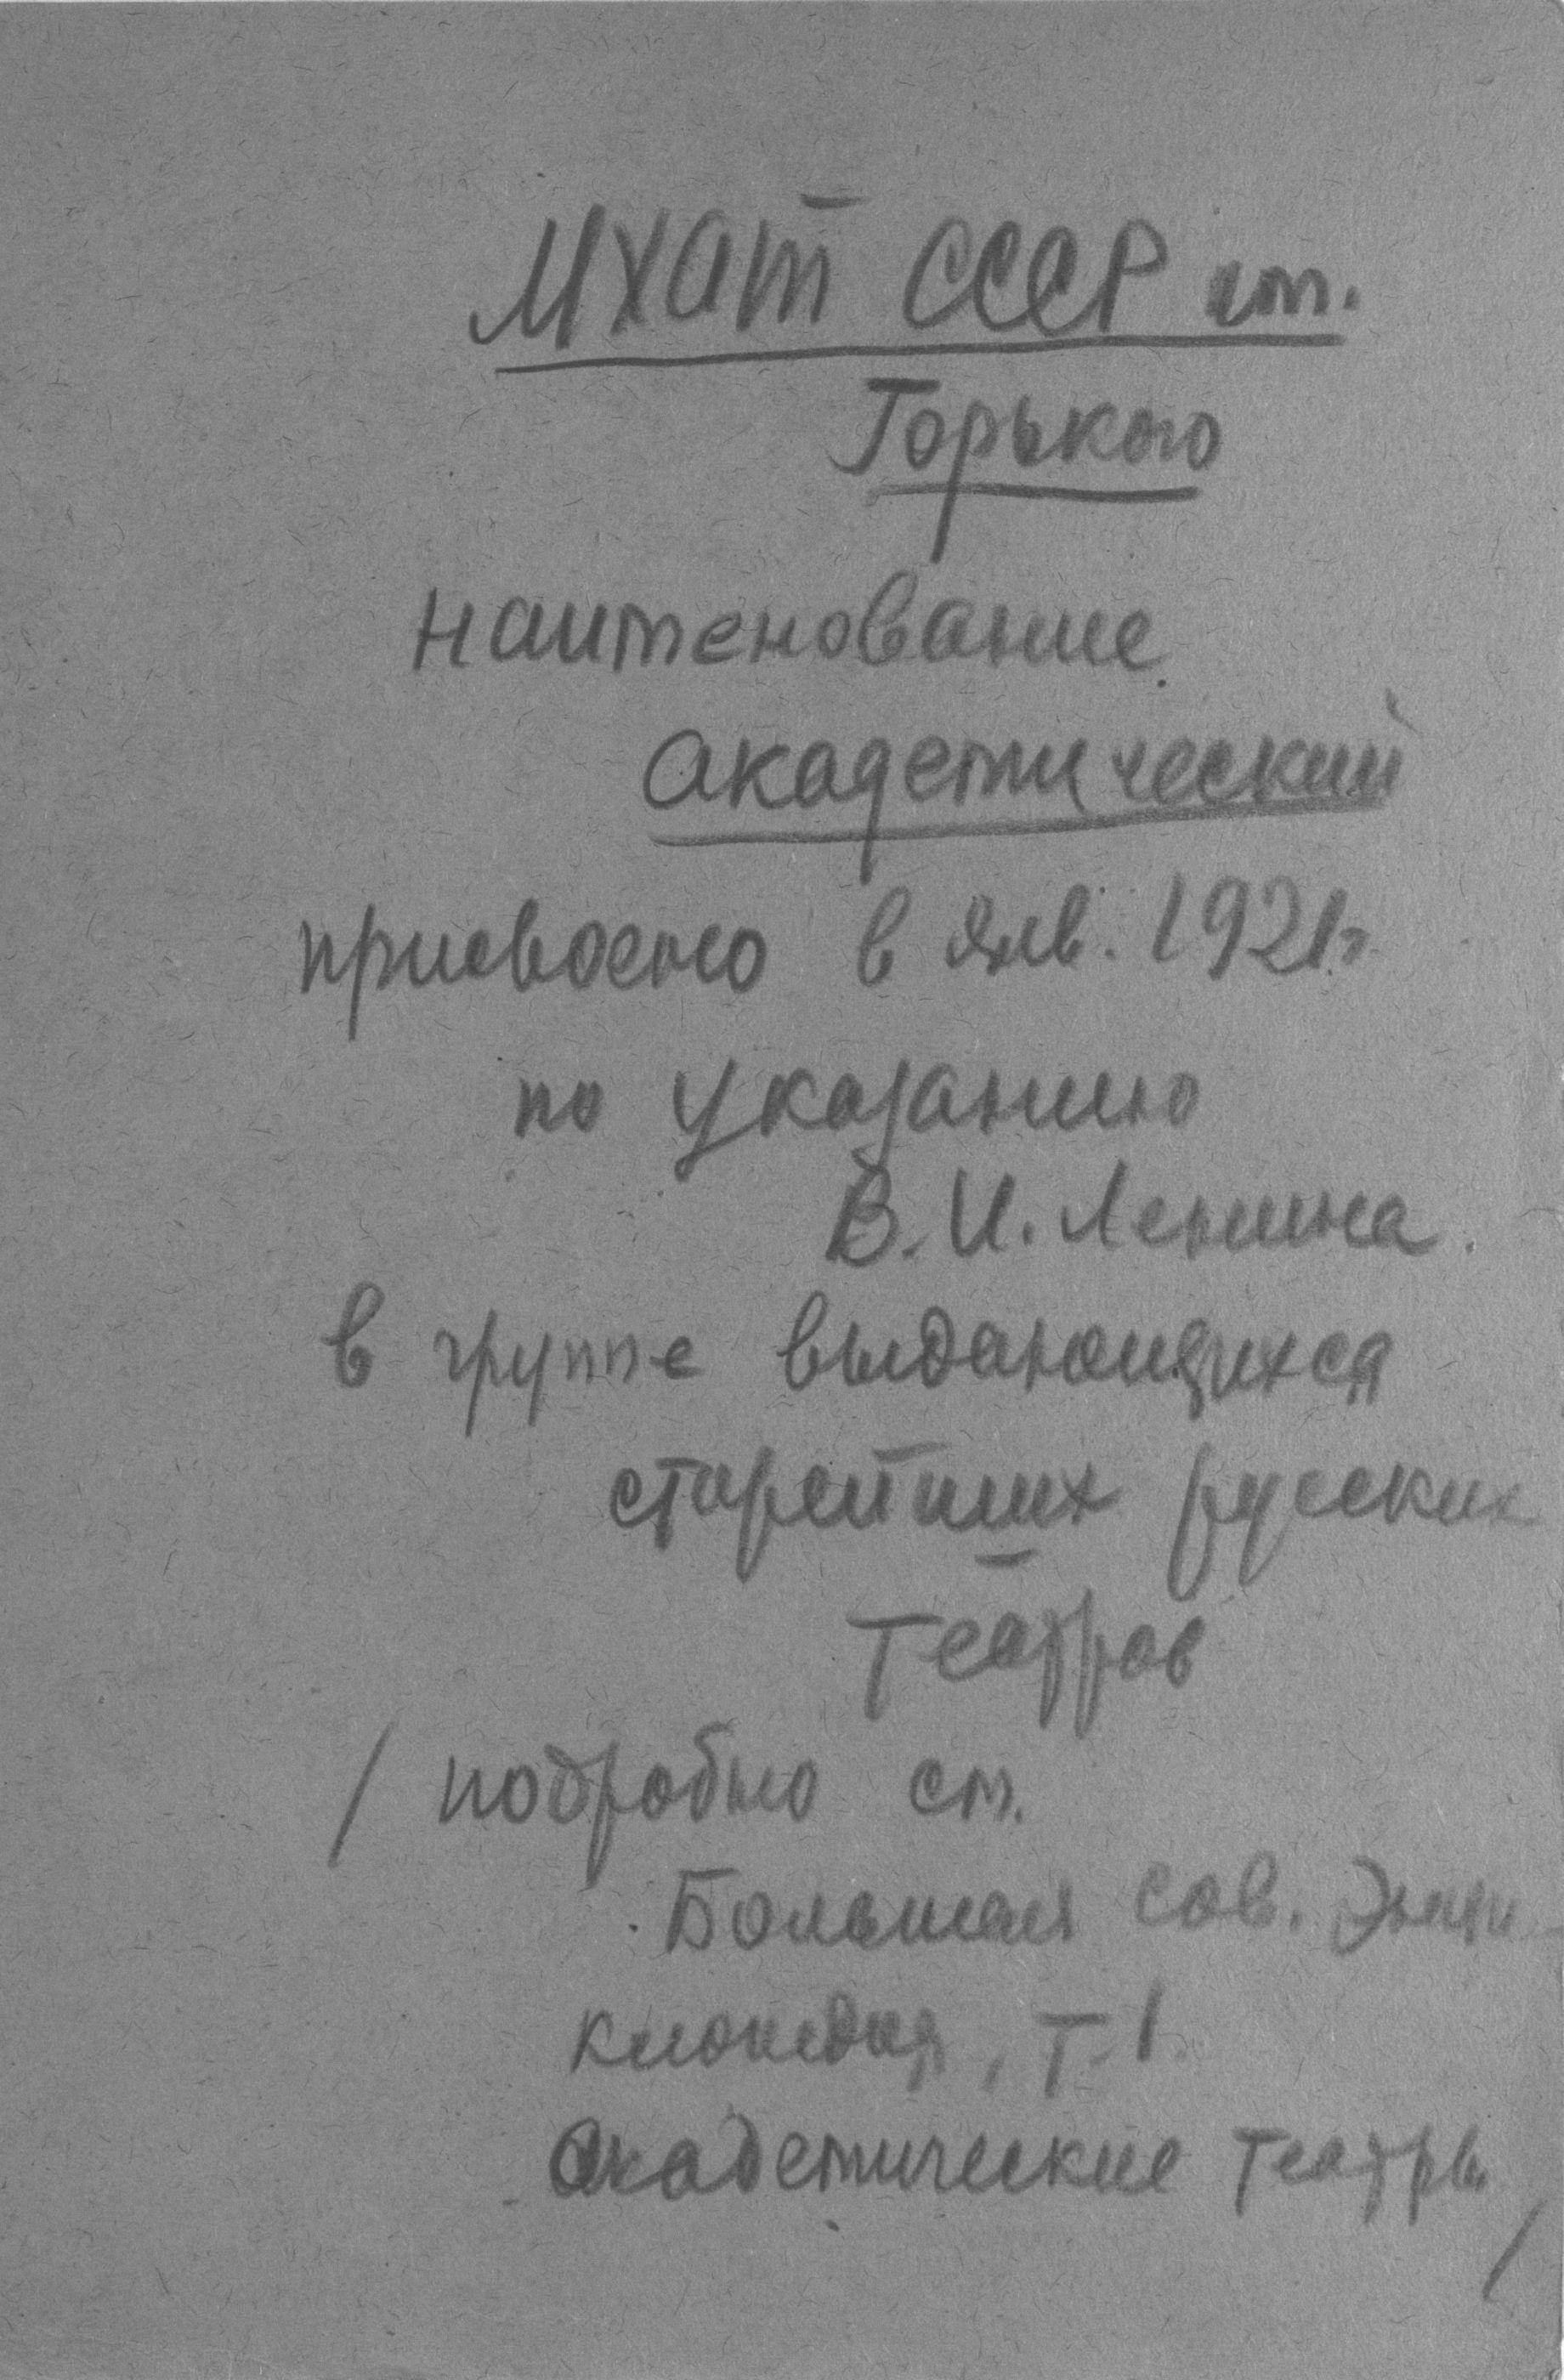 МХАТ СССР им.
Горького
наименование
академический
присвоено в янв. 1921г.
по указанию
В. И. Ленина
в группе выдающихся
старейших русских
театров
/ подробно см.
Большая сов. Энци
клопедия, т. 1.
Академические театры /